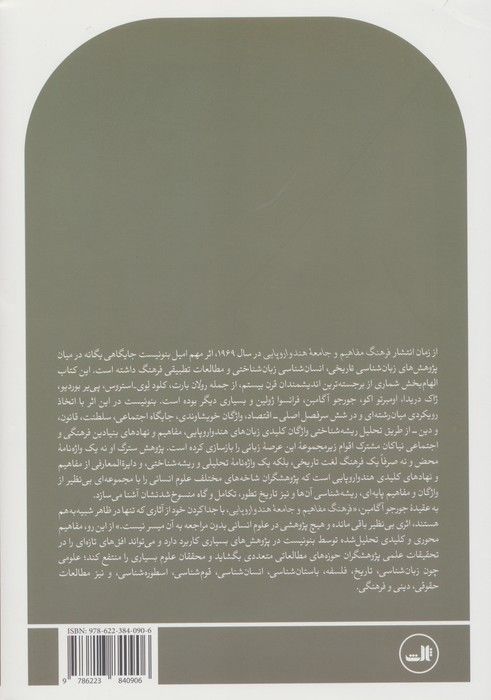 از زمان انتشار فرهنگ مفاهیم و جامعهٔ هندواروپایی در سال ۱۹۶۹، اثر مهم امیل بنونیست جایگاهی یگانه در میان
پژوهش‌های زبان‌شناسی تاریخی، انسان‌شناسی زبان‌شناختی و مطالعات تطبیقی فرهنگ داشته است. این کتاب
الهام‌بخش شماری از برجسته‌ترین اندیشمندان قرن بیستم، از جمله رولان بارت، کلود لوی‌ـ‌استروس، پی‌یر بوردیو،
ژاک دریدا، اومبرتو اکو، جورجو آگامبن، فرانسوا ژولین و بسیاری دیگر بوده است. بنونیست در این اثر با اتخاذ
رویکردی میان‌رشته‌ای و در شش سرفصل اصلی ـ اقتصاد، واژگان خویشاوندی، جایگاه اجتماعی، سلطنت، قانون،
و دین ـ از طریق تحلیل ریشه‌شناختی واژگان کلیدی زبان‌های هندواروپایی، مفاهیم و نهادهای بنیادین فرهنگی و
اجتماعی نیاکان مشترک اقوام زیرمجموعهٔ این عرصهٔ زبانی را بازسازی کرده است. پژوهش سترگ او نه یک واژه‌نامهٔ
محض و نه صرفاً یک فرهنگ لغت تاریخی، بلکه یک واژه‌نامهٔ تحلیلی و ریشه‌شناختی، و دایرةالمعارفی از مفاهیم
و نهادهای کلیدی هندواروپایی است که پژوهشگران شاخه‌های مختلف علوم انسانی را با مجموعه‌ای بی‌نظیر از
واژگان و مفاهیم پایه‌ای، ریشه‌شناسی آن‌ها و نیز تاریخ تطور، تکامل و گاه منسوخ شدنشان آشنا می‌سازد.
به عقیدهٔ جورجو آگامبن، «فرهنگ مفاهیم و جامعهٔ هندواروپایی، با جدا کردن خود از آثاری که تنها در ظاهر شبیه به هم
هستند، اثری بی‌نظیر باقی مانده و هیچ پژوهشی در علوم انسانی بدون مراجعه به آن میسر نیست.» از این رو، مفاهیم
محوری و کلیدی تحلیل‌شده توسط بنونیست در پژوهش‌های بسیاری کاربرد دارد و می‌تواند افق‌های تازه‌ای را در
تحقیقات علمی پژوهشگران حوزه‌های مطالعاتی متعددی بگشاید و محققان علوم بسیاری را منتفع کند؛ علومی
چون زبان‌شناسی، تاریخ، فلسفه، باستان‌شناسی، انسان‌شناسی، قوم‌شناسی، اسطوره‌شناسی، و نیز مطالعات
حقوقی، دینی و فرهنگی.
ثالث
ISBN: 978-622-384-090-6
9 786223 840906